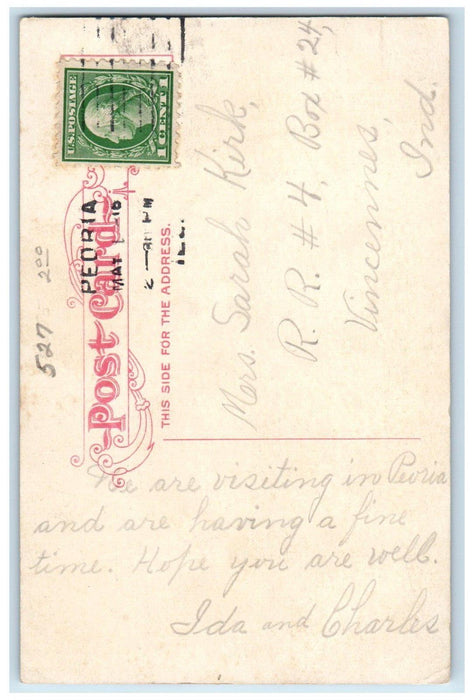 U.S. POSTAGE
1 CENT 1
PEORIA
MAY
ILL.
527 2 00
Post Card.
THIS SIDE FOR THE ADDRESS.
Mrs. Sarah Kirk,
R. R. # 4, Box # 24,
Vincennes,
Ind.
We are visiting in Peoria
and are having a fine
time. Hope you are well.
Ida and Charles